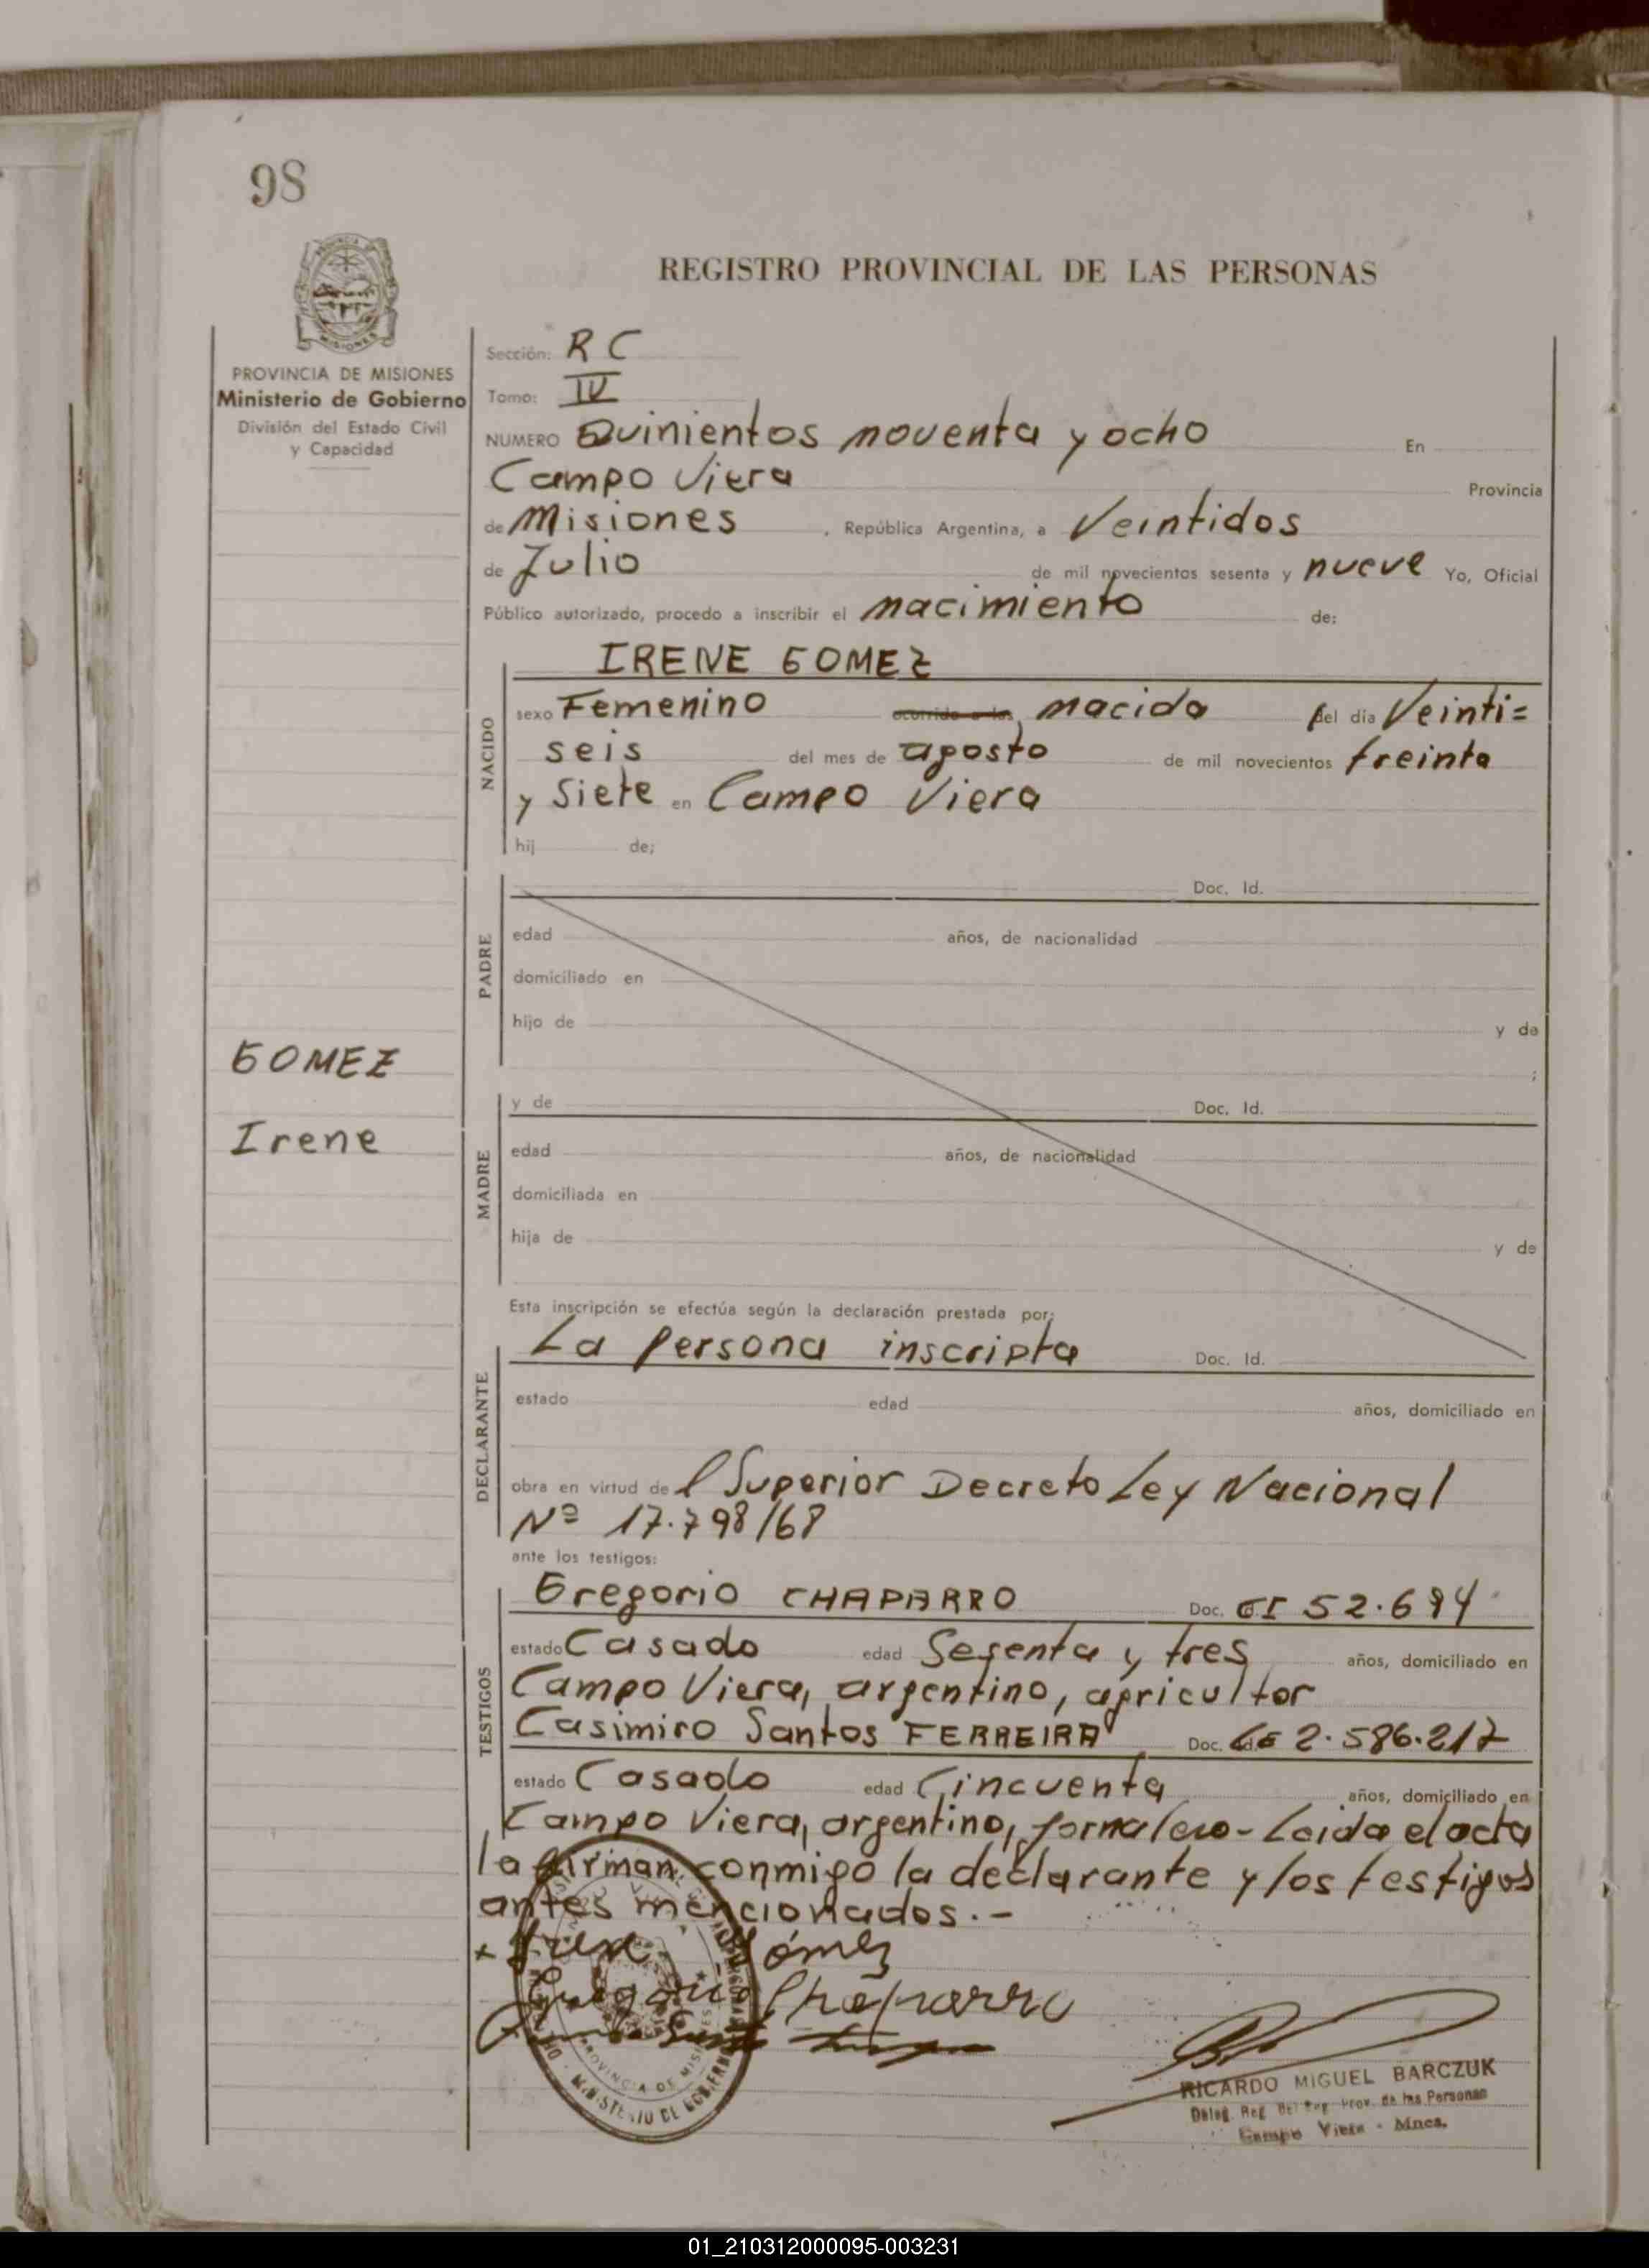 98
REGISTRO PROVINCIAL DE LAS PERSONAS
PROVINCIA DE MISIONES
Ministerio de Gobierno
División del Estado Civil
y Capacidad
Sección: R C
Tomo: IV
NUMERO Quinientos noventa y ocho En
Campo Viera Provincia
de Misiones, República Argentina, a Veintidos
de Julio de mil novecientos sesenta y nueve Yo, Oficial
Público autorizado, procedo a inscribir el nacimiento de:
IRENE GOMEZ
NACIDO
sexo Femenino ocurrido a las, nacida del día Veinti=
seis del mes de agosto de mil novecientos treinta
y Siete en Campo Viera
hij de;
PADRE
Doc. Id.
edad años, de nacionalidad
domiciliado en
hijo de y de
;
GOMEZ
Irene
MADRE
y de Doc. Id.
edad años, de nacionalidad
domiciliada en
hija de y de
Esta inscripción se efectúa según la declaración prestada por:
DECLARANTE
La persona inscripta Doc. Id.
estado edad años, domiciliado en
obra en virtud del Superior Decreto Ley Nacional
Nº 17.798/68
ante los testigos:
TESTIGOS
Gregorio CHAPARRO Doc. CI 52.694
estado Casado edad Sesenta y tres años, domiciliado en
Campo Viera, argentino, agricultor
Casimiro Santos FERREIRA Doc. LE 2.586.217
estado Casado edad Cincuenta años, domiciliado en
Campo Viera, argentino, jornalero - Leida el acta
la firman conmigo la declarante y los testigos
antes mencionados.-
+ Irene Gómez
Gregorio Chaparro
PROVINCIA DE MISIONES
MINISTERIO DE GOBIERNO
RICARDO MIGUEL BARCZUK
Deleg. Reg. Del Reg. Prov. de las Personas
Campo Viera - Mnes.
01_210312000095-003231